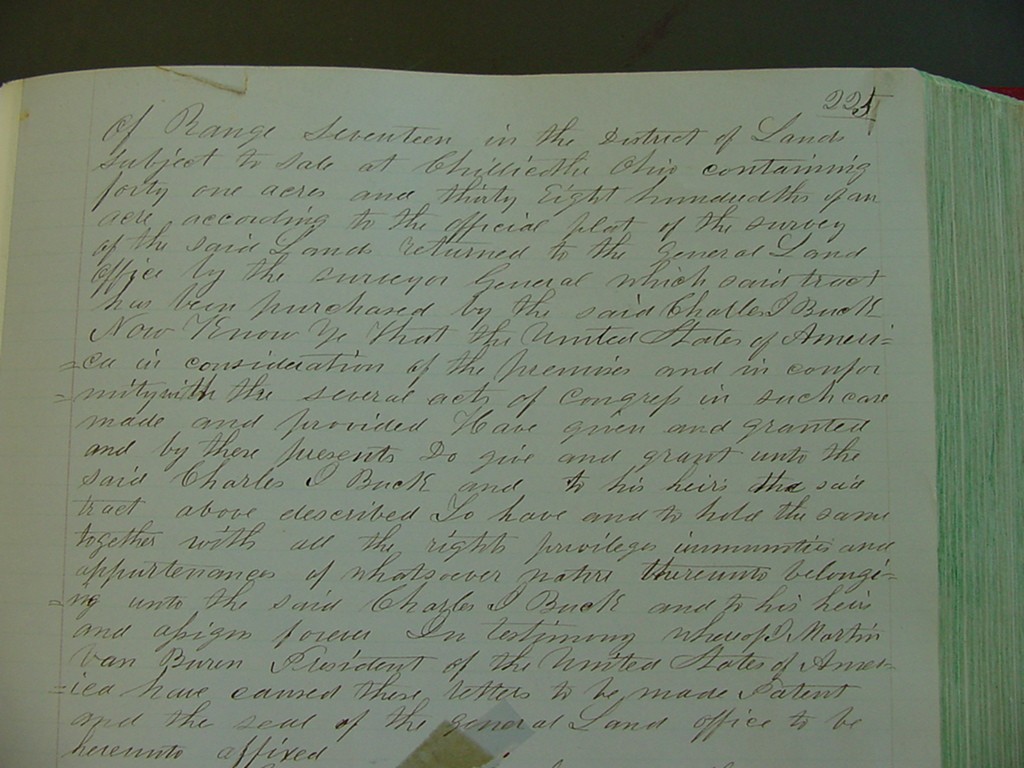 225
of Range Seventeen in the District of Lands
subject to sale at Chillicothe Ohio containing
forty one acres and thirty Eight hundredths of an
acre, according to the official plat of the survey
of the said Lands returned to the General Land
office by the surveyor General which said tract
has been purchased by the said Charles I Buck
Now Know Ye That the United States of Ameri-
=ca in consideration of the premises and in confor
=mity with the several acts of Congress in such case
made and provided Have given and granted
and by these presents Do give and grant unto the
said Charles I Buck and to his heirs the said
tract above described To have and to hold the same
together with all the rights privileges immunities and
appurtenances of whatsoever nature thereunto belongi-
=ng unto the said Charles I Buck and to his heirs
and assigns forever In testimony whereof I Martin
Van Buren President of the United States of Amer-
=ica have caused these letters to be made Patent
and the seal of the general Land office to be
hereunto affixed